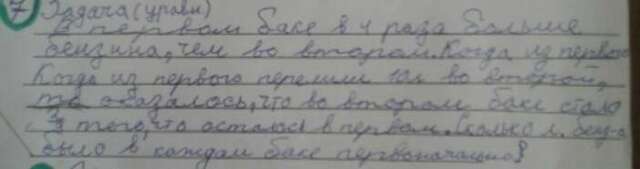 7 Задача (уравн)
В первом баке в 4 раза больше
бензина, чем во втором. Когда из первого
Когда из первого перелили 10л во второй,
то оказалось, что во втором баке стало
того, что осталось в первом. Сколько л. бенз-а
было в каждом баке первоначально?